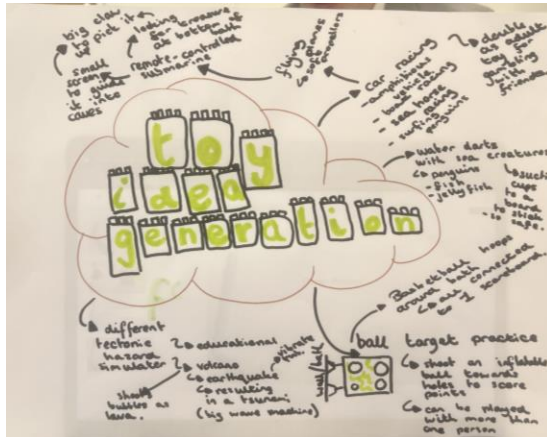 big claw
to pick it
up
looking
for treasure
at bottom of
bath
remote-controlled
submarine
small
screen
to guide
it into
caves
flying
planes
soft propellers
car racing
- amphibious
vehicle
- boat racing
- sea horse
racing
- surfing
penguins
double
as adult
toy for
gambling
with
friends
toy
idea
generation
water darts
with sea creatures
penguins
- fish
- jellyfish
suction
cups
to a
board
to stick
- so safe.
Basketball hoops
around bath
all connected
to 1 scoreboard.
ball target practice
wall/bath
shoot an inflatable
ball towards
holes to score
points
can be played
with more than
one person
different
tectonic
hazard
simulator
educational
volcano
earthquake
vibrate
resulting
in a tsunami
(big wave machine)
shoots
bubbles as
lava.